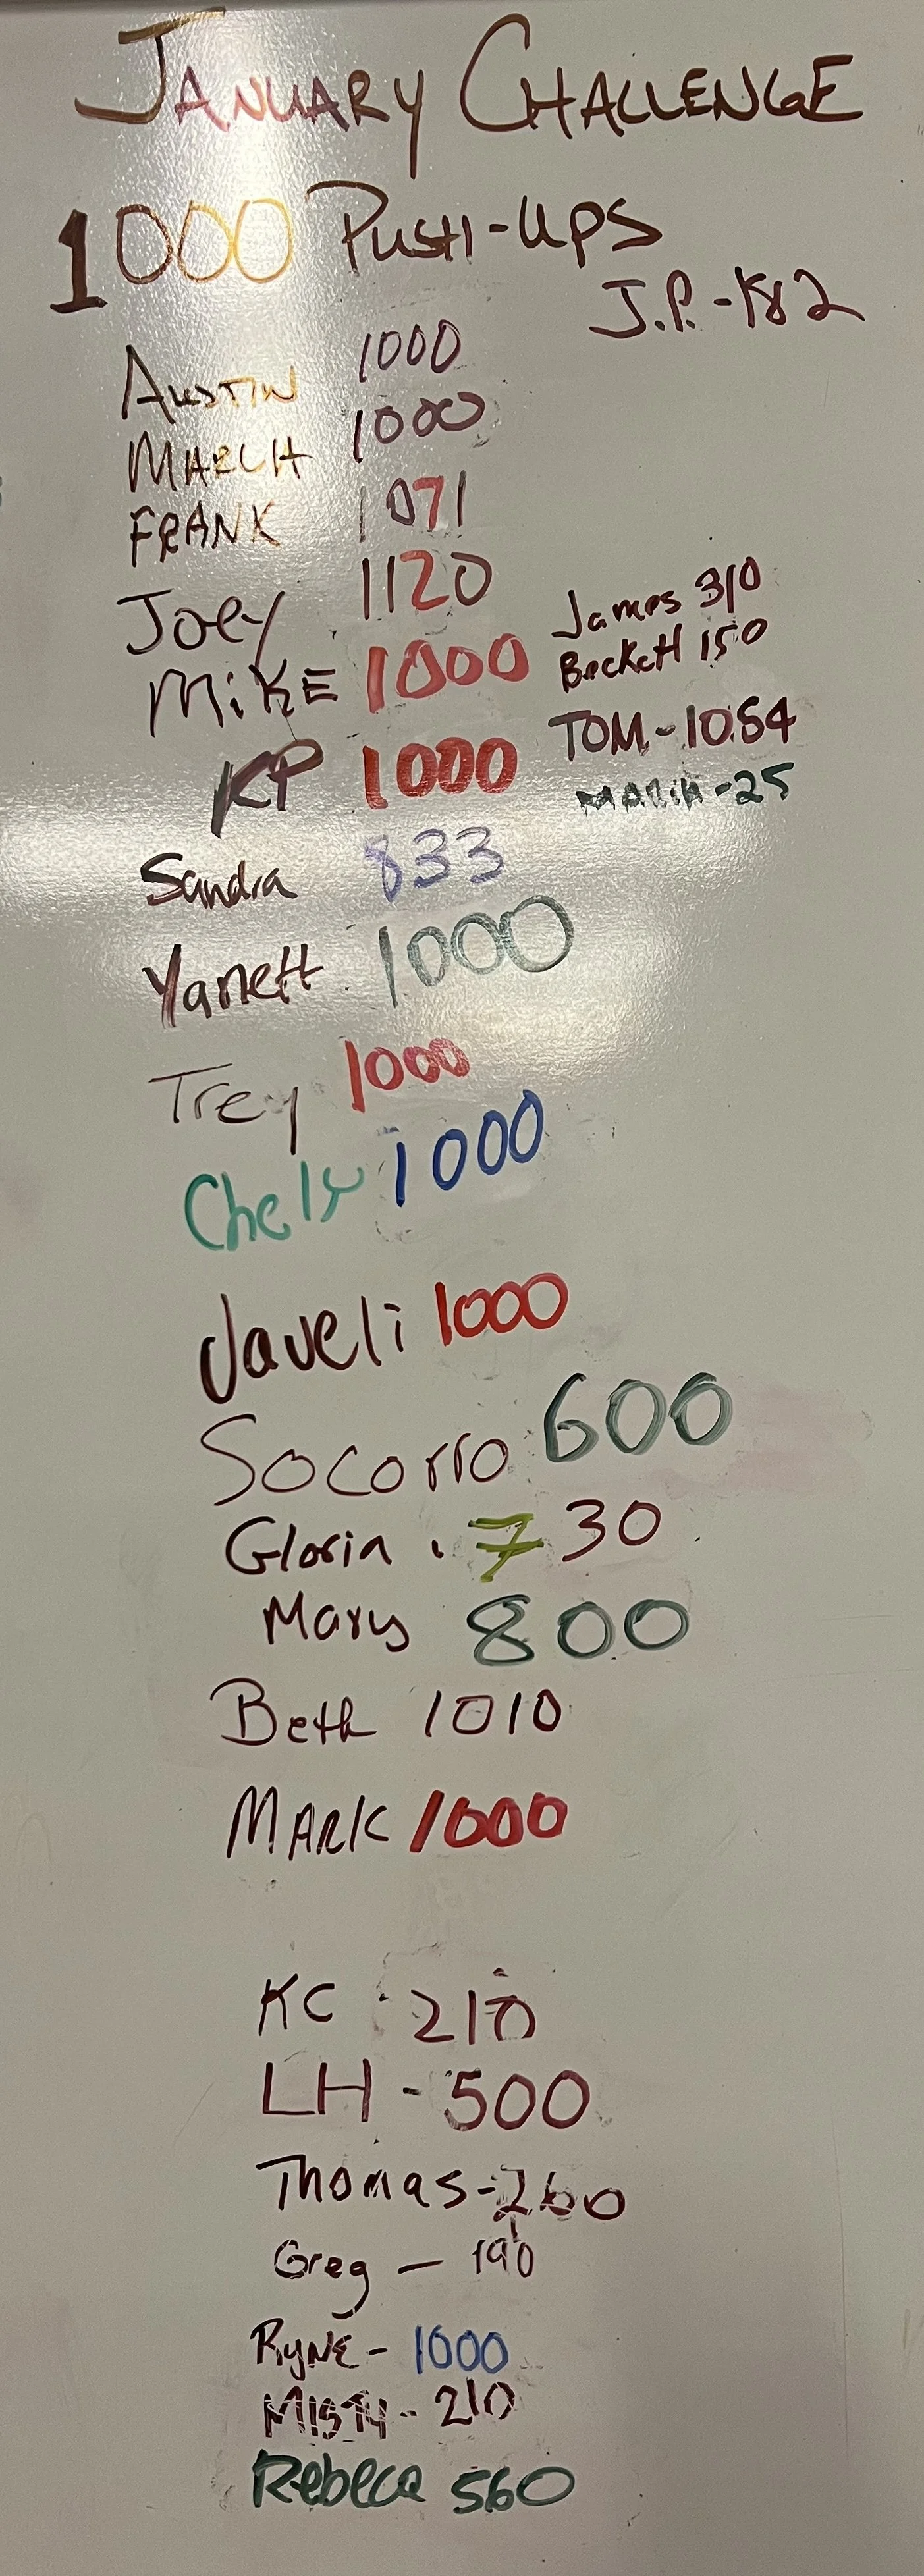 JANUARY CHALLENGE
1000 PUSH-UPS
J.P. - 182
AUSTIN 1000
MARCH 1000
FRANK 1071
Joey 1120
MIKE 1000
KP 1000
James 310
Beckett 150
TOM - 1054
MARIA - 25
Sandra 833
Yanett 1000
Trey 1000
Chely 1000
Javeli 1000
Socorro 600
Gloria 730
Mary 800
Beth 1010
MARK 1000
KC 210
LH - 500
Thomas - 260
Greg - 190
RYNE - 1000
MISTY - 210
Rebeca 560